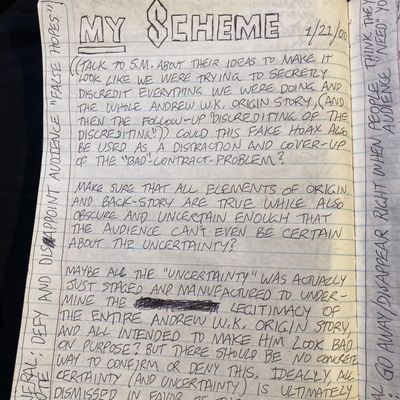 MY SCHEME
1/21/00
((TALK TO S.M. ABOUT THEIR IDEAS TO MAKE IT
LOOK LIKE WE WERE TRYING TO SECRETLY
DISCREDIT EVERYTHING WE WERE DOING AND
THE WHOLE ANDREW W.K. ORIGIN STORY, (AND
THEN THE FOLLOW-UP "DISCREDITING OF THE
DISCREDITING")) COULD THIS FAKE HOAX ALSO
BE USED AS A DISTRACTION AND COVER-UP
OF THE "BAD"-CONTRACT-PROBLEM?
MAKE SURE THAT ALL ELEMENTS OF ORIGIN
AND BACK-STORY ARE TRUE WHILE ALSO
OBSCURE AND UNCERTAIN ENOUGH THAT
THE AUDIENCE CAN'T EVEN BE CERTAIN
ABOUT THE UNCERTAINTY?
MAYBE ALL THE "UNCERTAINTY" WAS ACTUALLY
JUST STAGED AND MANUFACTURED TO UNDER-
MINE THE LEGITIMACY OF
THE ENTIRE ANDREW W.K. ORIGIN STORY,
AND ALL INTENDED TO MAKE HIM LOOK BAD
ON PURPOSE? BUT THERE SHOULD BE NO CONCRETE
WAY TO CONFIRM OR DENY THIS. IDEALLY, ALL
CERTAINTY (AND UNCERTAINTY) IS ULTIMATELY
DISMISSED IN FAVOR OF THE
DEFY AND DISAPPOINT AUDIENCE "FALSE HOPES"
GO AWAY/DISAPPEAR RIGHT WHEN PEOPLE THINK THEY
AUDIENCE "NEED" YO